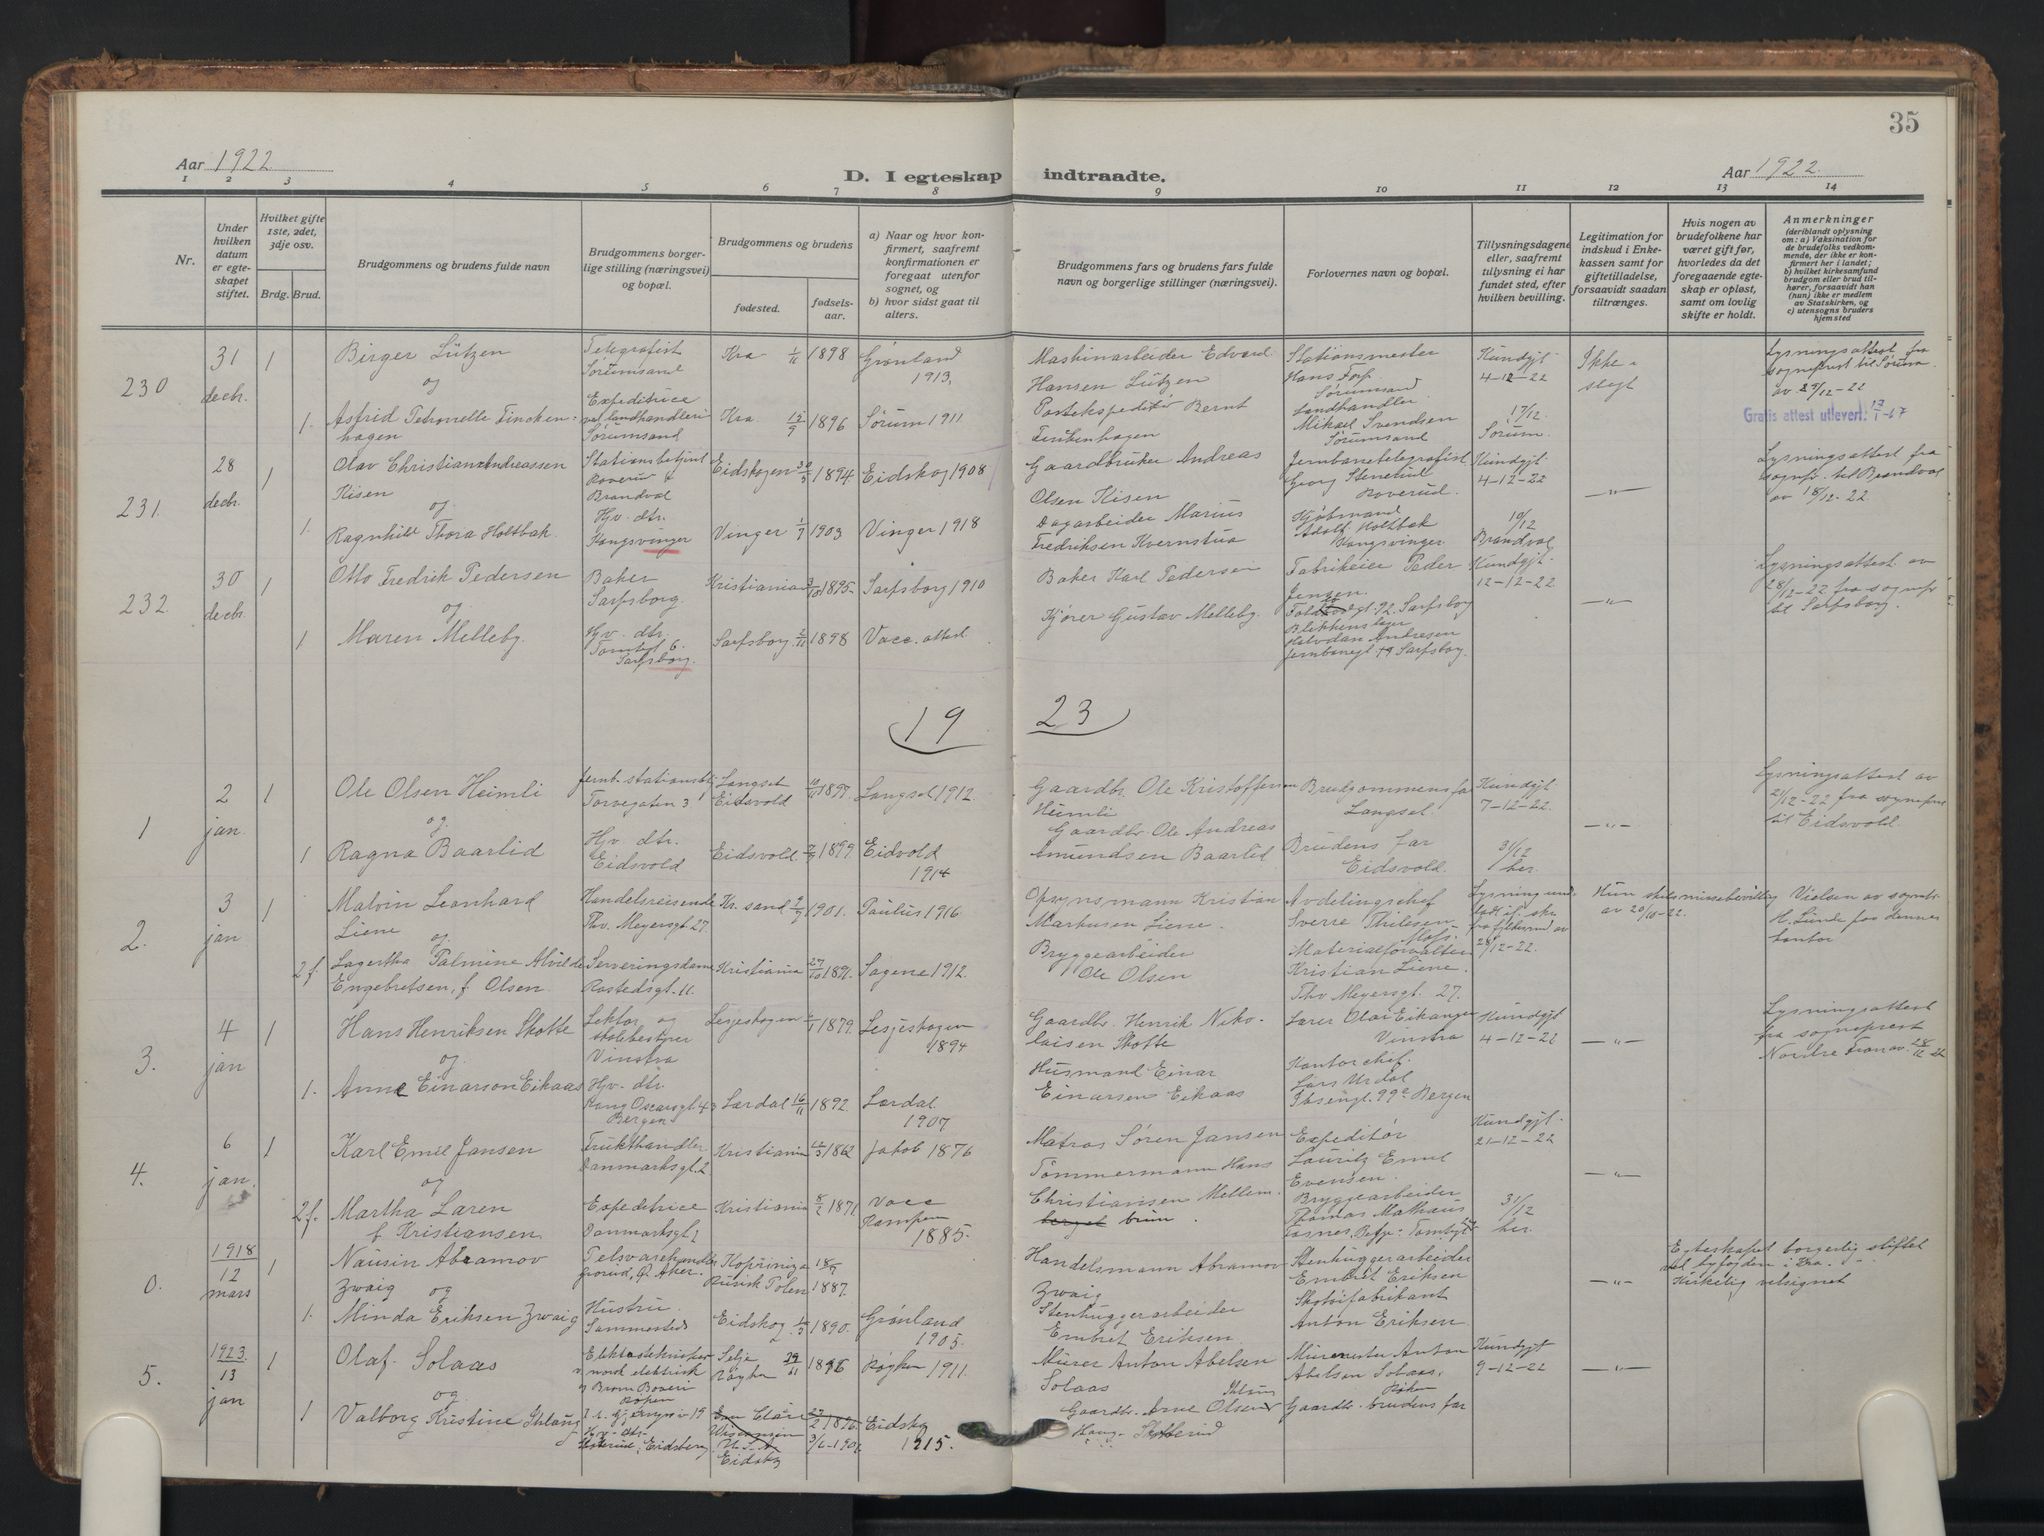 35
Aar 1922
D. I egteskap indtraadte.
Aar 1922.
1 2 3 4 5 6 7 8 9 10 11 12 13 14
Nr.
Under hvilken datum er egteskapet stiftet.
Hvilket gifte 1ste, 2det, 3dje osv.
Brdg. Brud.
Brudgommens og brudens fulde navn
Brudgommens borgerlige stilling (næringsvei) og bopæl.
Brudgommens og brudens
fødested.
fødselsaar.
a) Naar og hvor konfirmert, saafremt konfirmationen er foregaat utenfor sognet, og
b) hvor sidst gaat til alters.
Brudgommens fars og brudens fars fulde navn og borgerlige stillinger (næringsvei).
Forlovernes navn og bopæl.
Tillysningsdagene eller, saafremt tillysning ei har fundet sted, efter hvilken bevilling.
Legitimation for indskud i Enkekassen samt for giftetilladelse, forsaavidt saadan tiltrænges.
Hvis nogen av brudefolkene har været gift før, hvorledes da det foregaaende egteskap er opløst, samt om lovlig skifte er holdt.
Anmerkninger
(deriblandt oplysning om: a) Vaksination for de brudefolks vedkommende, der ikke er konfirmert her i landet; b) hvilket kirkesamfund brudgom eller brud tilhører, forsaavidt han (hun) ikke er medlem av Statskirken, og c) utensogns bruders hjemsted
230
31 decbr.
1
Birger Lützen
og
1. Astrid Petronelle Finckenhagen
Telegrafist
Sørumsand
Expeditrice
ved landhandleri
Sørumsand
Kra 1/11 1898
Kra 1896
Grønland
1913.
Sørum 1911
Maskinarbeider Edvard
Hansen Lützen
Postekspeditør Bernt
Finkenhagen
Stationsmester
Hans Torp
Sørumsand
Landhandler
Mikael Svendsen
Sørumsand
Kundgjt.
4-12-22
17/12.
Sørum.
Ikke
slegt
Lysningsattest fra
sogneprest til Sørum
av 29/12-22
Gratis attest utlevert: 17/1-67
231.
28 decbr.
1
Olav Christian Andreassen
Kisen
og
1. Ragnhild Thora Holtbak.
Stationsbetjent
Roverud
Brandval
Hv. dtr.
Kongsvinger
Eidskogen 1894
Vinger 1/7 1903
Eidskog 1908
Vinger 1918
Gaardbruker Andreas
Olsen Kisen
Dagarbeider Marius
Fredriksen Kvernstua
Jernbanetelegrafist
Georg Stenerud
Roverud.
Kjøbmand
Adolf Holtbak
Kongsvinger
Kundgjt
4-12-22
10/12
Brandval
—„—
Lysningsattest fra
sognepr. til Brandval
av 18/12-22.
232.
30 decbr.
1
Otto Fredrik Pedersen
og
1 Maren Melleby.
Baker
Sarpsborg.
Hv. dtr.
Tomtegt 6.
Sarpsborg.
Kristiania 1895
Sarpsborg. 1898
Sarpsborg 1910
Vacc. attest
Baker Karl Pedersen
Kjører Gustav Melleby.
Fabrikeier Peder
Jensen.
92. Sarpsborg
Blikkenslager
Halvdan Andresen
Jernbanegt 49 Sarpsborg.
Kundgjt.
12-12-22.
—„—
Lysningsattest av
28/12-22 fra sognepr
til Sarpsborg.
19 23
1
2 jan.
1
Ole Olsen Heimli
og
1 Ragna Baarlid
Jernb. stationsbtj
Torvegaten 3
Hv. dtr.
Eidsvold
Langset
Eidsvold 1897.
Eidsvold 1899
Langset 1912.
Eidvold
1914
Gaardbr. Ole Kristoffersen
Heimli
Gaardbr. Ole Andreas
Amundsen Baarlid
Brudgommens far
Langset.
Brudens far
Eidsvold.
Kundgjt.
7-12-22.
31/12
her.
—„—
Lysningsattest av
21/12-22 fra sogneprest
til Eidsvold.
2.
3 jan
1
Malvin Leonhard
Liene
og
2 f. Lagertha Palmine Alvilde
Engebretsen, f. Olsen
Handelsreisende
Thv. Meyersgt 27.
Serveringsdame
Rostedsgt. 11.
Kr. sand 1901.
Kristiania 27/10 1891.
Paulus 1916.
Sagene 1912.
Opsynsmann Kristian
Markusen Liene.
Bryggearbeider
Ole Olsen
Avdelingschef
Sverre Thilesen
Materialforvalter
Kristian Liene.
Thv Meyersgt. 27.
Lysning und-
28/12-22.
Kun skilsmissebevilling
av 20/10-22.
Vielsen av sognepr.
H. Lunde paa dennes
kontor
3.
4 jan
1
Hans Henriksen Skotte
og
1. Anna Einarson Eikaas
Lektor og
skolebestyrer
Vinstra
Hv. dtr.
Kong Oscarsgt 43
Bergen
Lesjeskogen 1879.
Lærdal 16/11 1892.
Lesjeskogen
1894
Lærdal.
1907
Gaardbr. Henrik Niko-
laisen Skotte
Husmand Einar
Einarsen Eikaas
Lærer Olai Eikanger
Vinstra
Kontorchef.
Lars Urdal
Ibsengt. 99 Bergen
Kundgjt
4-12-22
—„—
Lysningsattest
fra sogneprest
Nordre Fron av 28/12 22
4.
6 jan.
1
Karl Emil Jansen
og
2 f. Martha Laren
f. Kristiansen
Frukthandler
Danmarksgt. 2
Expeditrice
Danmarksgt
Kristiania 1862
Kristiania 1871
Jakob 1876
Vacc
Kampen
1885.
Matros Søren Jansen
Tømmermann Hans
Christiansen Mellem-
brun.
Expeditør
Lauritz Emil
Evensen.
Bryggearbeider
Thomas Mathæus
Kundgjt.
21-12-22
31/12
her.
—„—
0.
1918
12 mars
1
Nausin Abramov
Zwaig og
1. Minda Eriksen Zwaig
Grorud, Aker.
Hustru.
Sammesteds
Russisk Polen 1887.
Eidskog 1890.
Grønland
1905.
Handelsmann Abramov
Zwaig
Stenhuggerarbeider
Embret Eriksen.
Stenhuggerarbeider
Embret Eriksen
Skotøifabrikant
Anton Eriksen.
—„—
Egteskapet borgerlig stiftet
ved byfogden i Kra.
Kirkelig velsignet
5.
1923.
13 jan
1
Olaf Solaas
og
1 Valborg Kristine
Elektrotekniker
v. norsk elektrisk
og Brown Boveri
Røken
Hv. dtr.
Eidsberg
Røyken 1896
Eau Claire
Wisconsin
U.S.A
Eidskog
Røyken 1911.
Eidskog
1915.
Murer Anton Abelsen
Solaas
Gaardbr. Arne Olsen
Murmester Anton
Abelsen Solaas.
Røken
Gaardbr. brudens far
Kundgjt
9-12-22
—„—